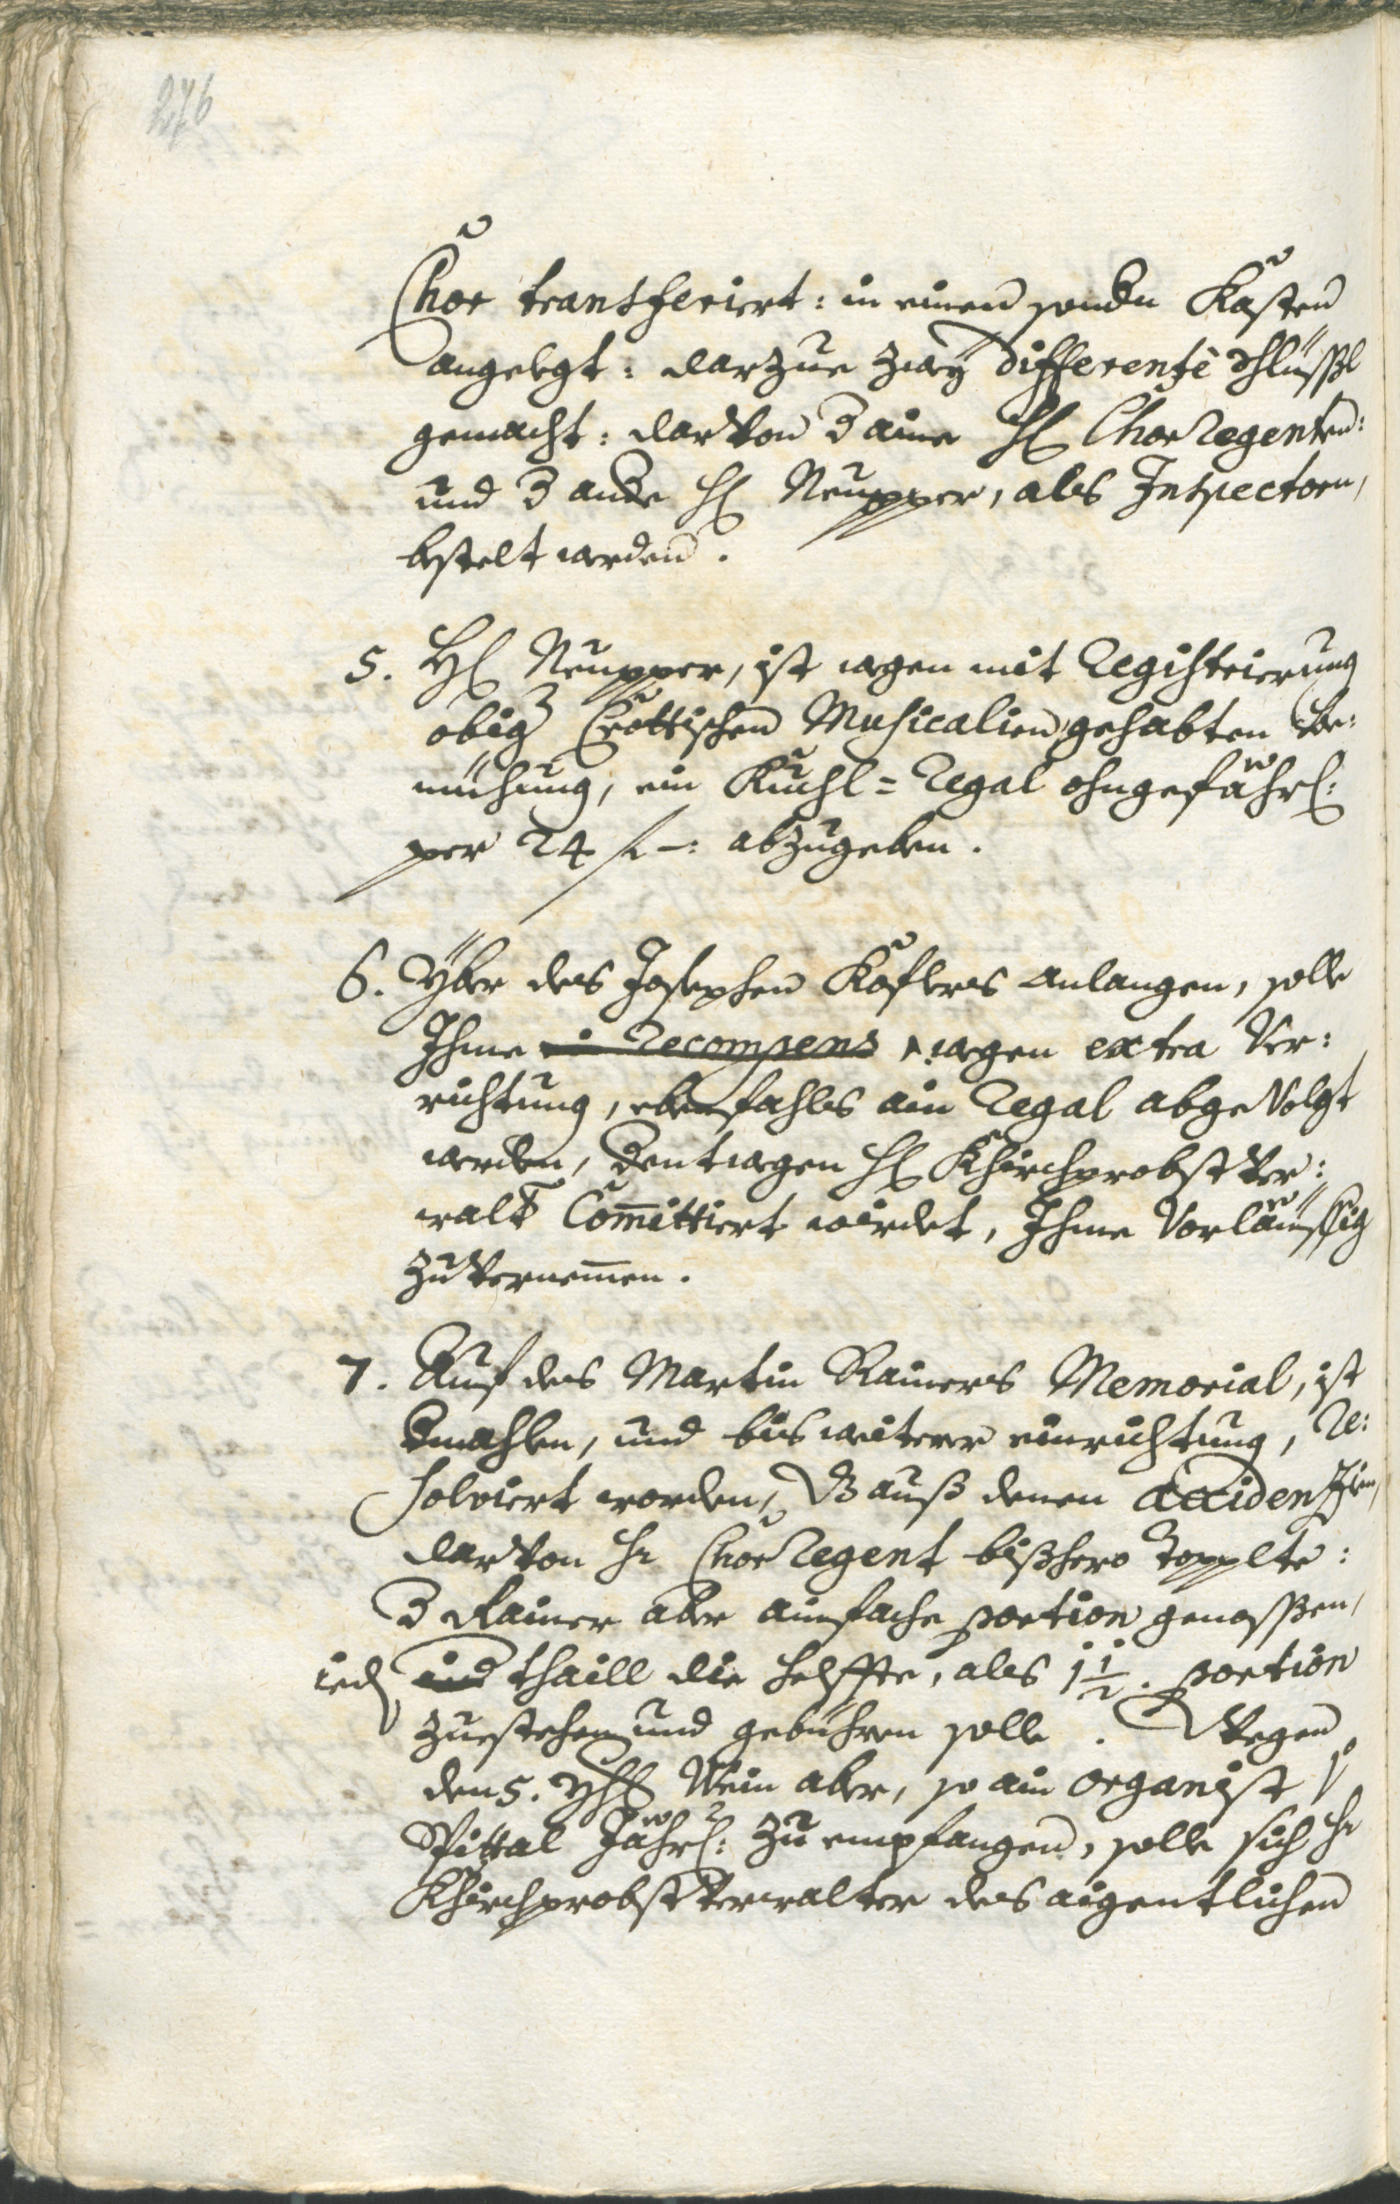 276
Chor transferiert: in einen sondn Kasten
angelegt: darzue zwaÿ differente schlüssl
gemacht: darvon d aine H: Chor Regenten:
und d ande H: Neupper, als Inspectorn,
bestelt werden.
5. H: Neupper, ist wegen mit Registrierung
obig Crottischen Musicalien gehabten Be:
müehung, ein Kuchl-Regal ohngefähr:
per 24 fl –: abzugeben.
6. Yber des Josephen Koflers anlangen, solle
Ihme ein Recompens wegen extra Ver:
richtung, ebenfahls ain Regal abgevolgt
werden, dentwegen H: Khirchprobst Ver:
walt Com̄ittiert wirdet, Ihme Vorläuffig
zuvernem̄en.
7. Auf des Martin Rainers Memorial, ist
dmahlen, und bis weiterer einrichtung, Re:
solviert worden, dz auß denen Accidenzien,
darvon Hr Chor Regent bißhero dopplte:
d Rainer aber ainfache portion genossen,
ied thaill die helffte, als 1 1/2. portion
zuestehen und gebühren solle. Wegen
den 5. Yh: Wein aber, so ain organist
Spittal Jährl: zu empfangen, solle sich Hr
Khirchprobst Verwalter des aigentlichen